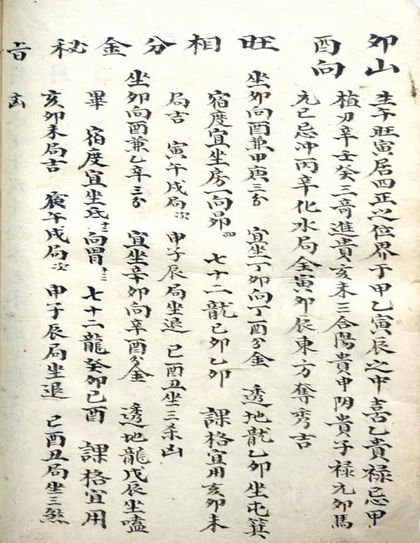 卯山
酉向
旺
相
分
金
秘
旨
生午旺寅居四正之位界于甲乙寅辰之中喜乙貴祿忌甲
植刃辛壬癸三奇進貴亥未三合陽貴申阴貴子祿元卯馬
元巳忌冲丙辛化水局全寅卯辰東方奪秀吉
坐卯向酉兼甲庚三分 宜坐丁卯向丁酉分金 透地龍乙卯坐屯箕
宿度宜坐房一向昴四 七十二龍己卯乙卯 課格宜用亥卯未
局吉 寅午戌局次 申子辰局坐退 巳酉丑坐三杀凶
坐卯向酉兼乙辛三分 宜坐辛卯向辛酉分金 透地龍戊辰坐嗑
畢 宿度宜坐氐十二向胃十三 七十二龍癸卯己酉 課格宜用
亥卯未局吉 寅午戌局次 申子辰局坐退 巳酉丑局坐三煞
凶